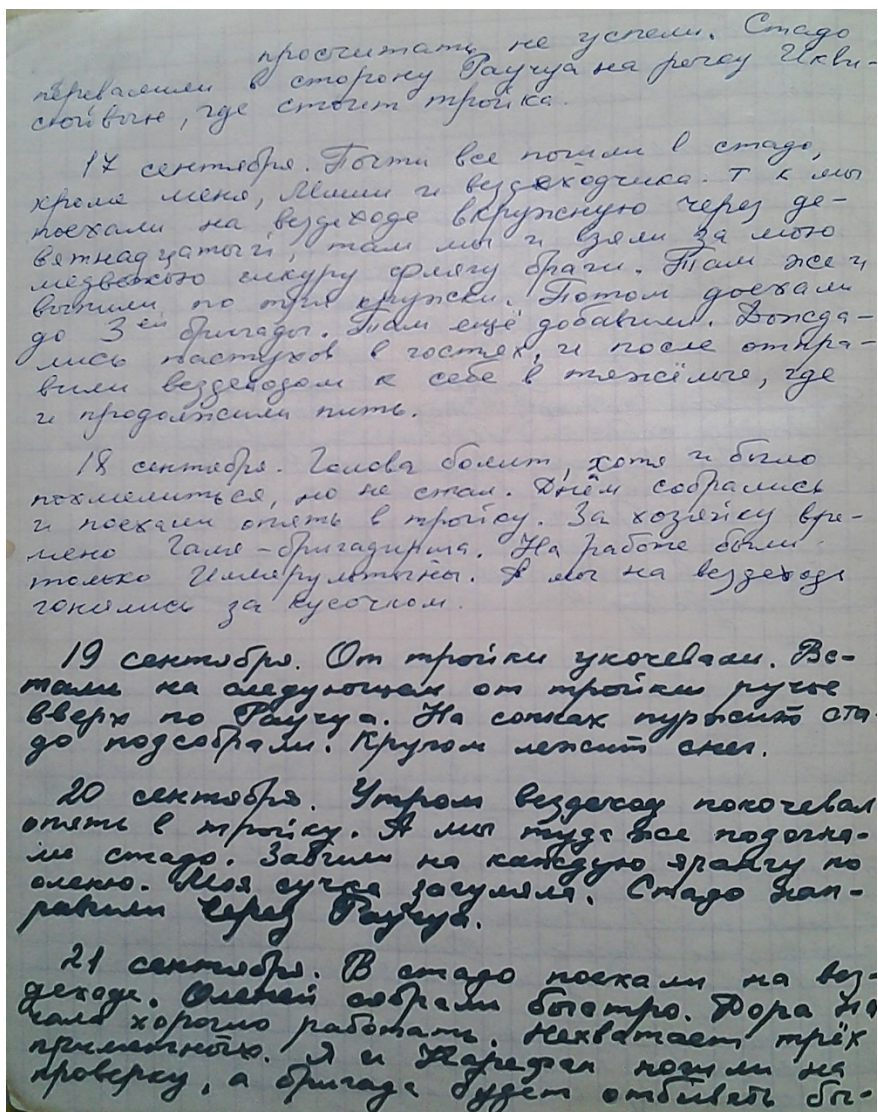 просчитать не успели. Стадо
перевалили в сторону Раучуа на речку Икви-
сюйвын, где стоит тройка.
17 сентября. Почти все пошли в стадо,
кроме меня, Миши и вездеходчика. Т к мы
поехали на вездеходе вкружную через де-
вятнадцатый, там мы и взяли за мою
медвежью шкуру флягу браги. Там же и
выпили по три кружки. Потом доехали
до 3ей бригады. Там ещё добавили. Дожда-
лись пастухов в гостях, и после отпра-
вили вездеходом к себе в тяжёлые, где
и продолжили пить.
18 сентября. Голова болит, хотя и было
похмелиться, но не стал. Днём собрались
и поехали опять в тройку. За хозяйку вре-
мено Галя-бригадирша. На работе были
только . А мы на вездеходе
гонялись за кусочком.
19 сентября. От тройки укочевали. Вс-
тали на следующем от тройки ручье
вверх по Раучуа. На сопках пуржит ста-
до подсобрали. Кругом лежит снег.
20 сентября. Утром вездеход покочевал
опять в тройку. А мы туда же подогна-
ли стадо. Забили на каждую ярангу по
оленю. Моя сучка загуляла. Стадо нап-
равили через Раучуа.
21 сентября. В стадо поехали на вез-
деходе. Оленей собрали быстро. Дора на-
чала хорошо работать. Нехватает трёх
приметных. Я и пошли на
проверку, а бригада будет отбивать бы-